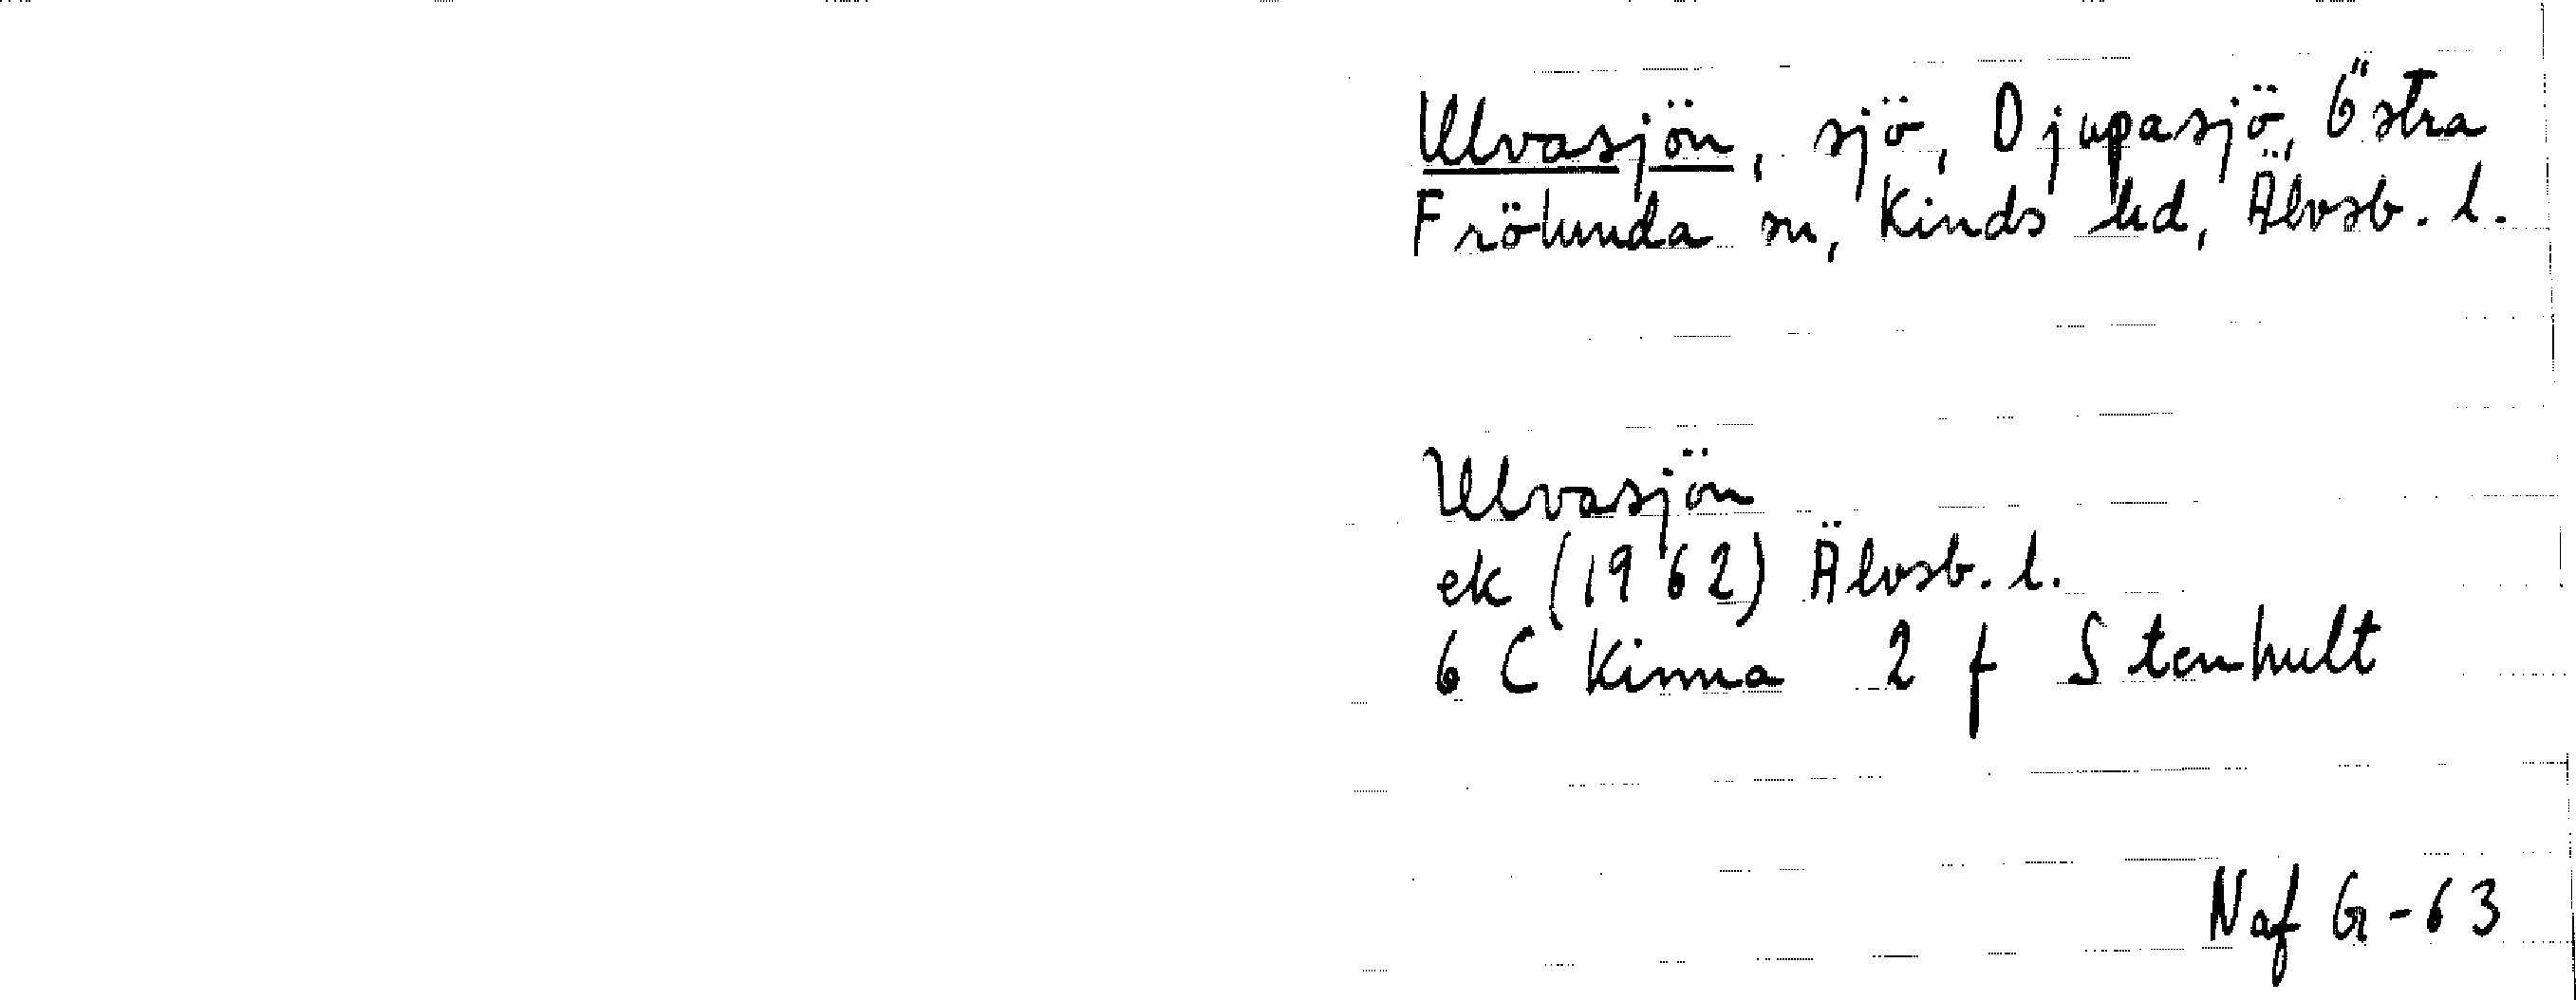 Ulvasjön, sjö, Djupasjö, Östra
Frölunda sn, Kinds hd, Älvsb. l.
Ulvasjön
ek (1962) Älvsb. l.
6 C Kinna 2 f Stenhult
Naf G-63